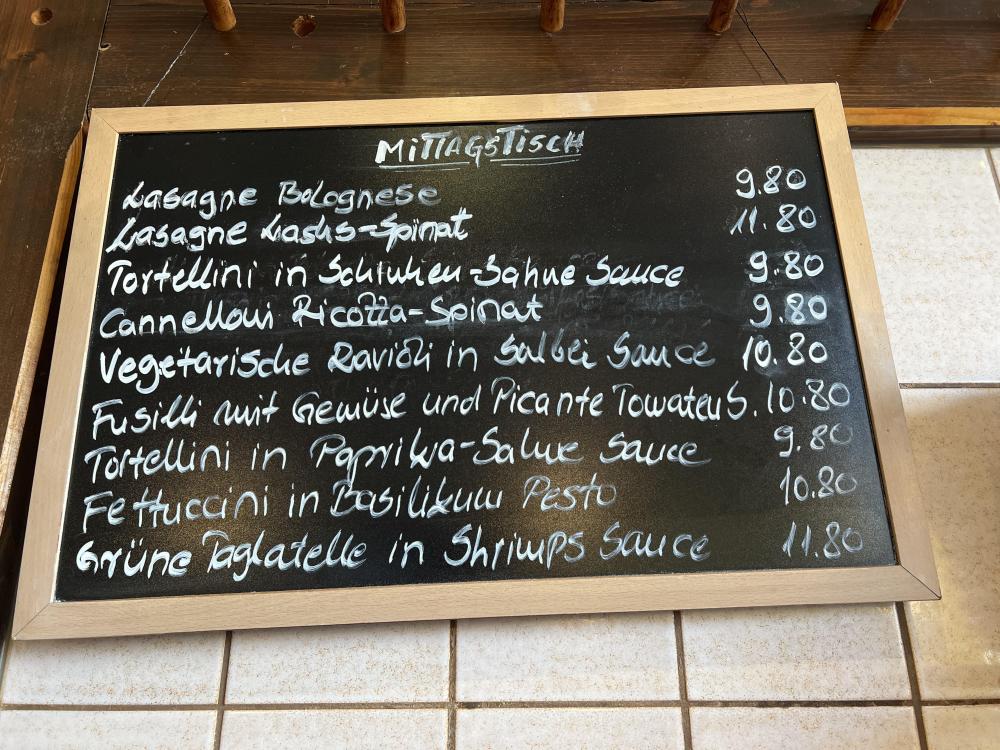 MITTAGSTISCH
Lasagne Bolognese 9.80
Lasagne Lachs-Spinat 11.80
Tortellini in Schinken-Sahne Sauce 9.80
Cannelloni Ricotta-Spinat 9.80
Vegetarische Ravioli in Salbei Sauce 10.80
Fusilli mit Gemüse und Picante Tomaten S. 10.80
Tortellini in Paprika-Sahne Sauce 9.80
Fettuccini in Basilikum Pesto 10.80
Grüne Taglatelle in Shrimps Sauce 11.80